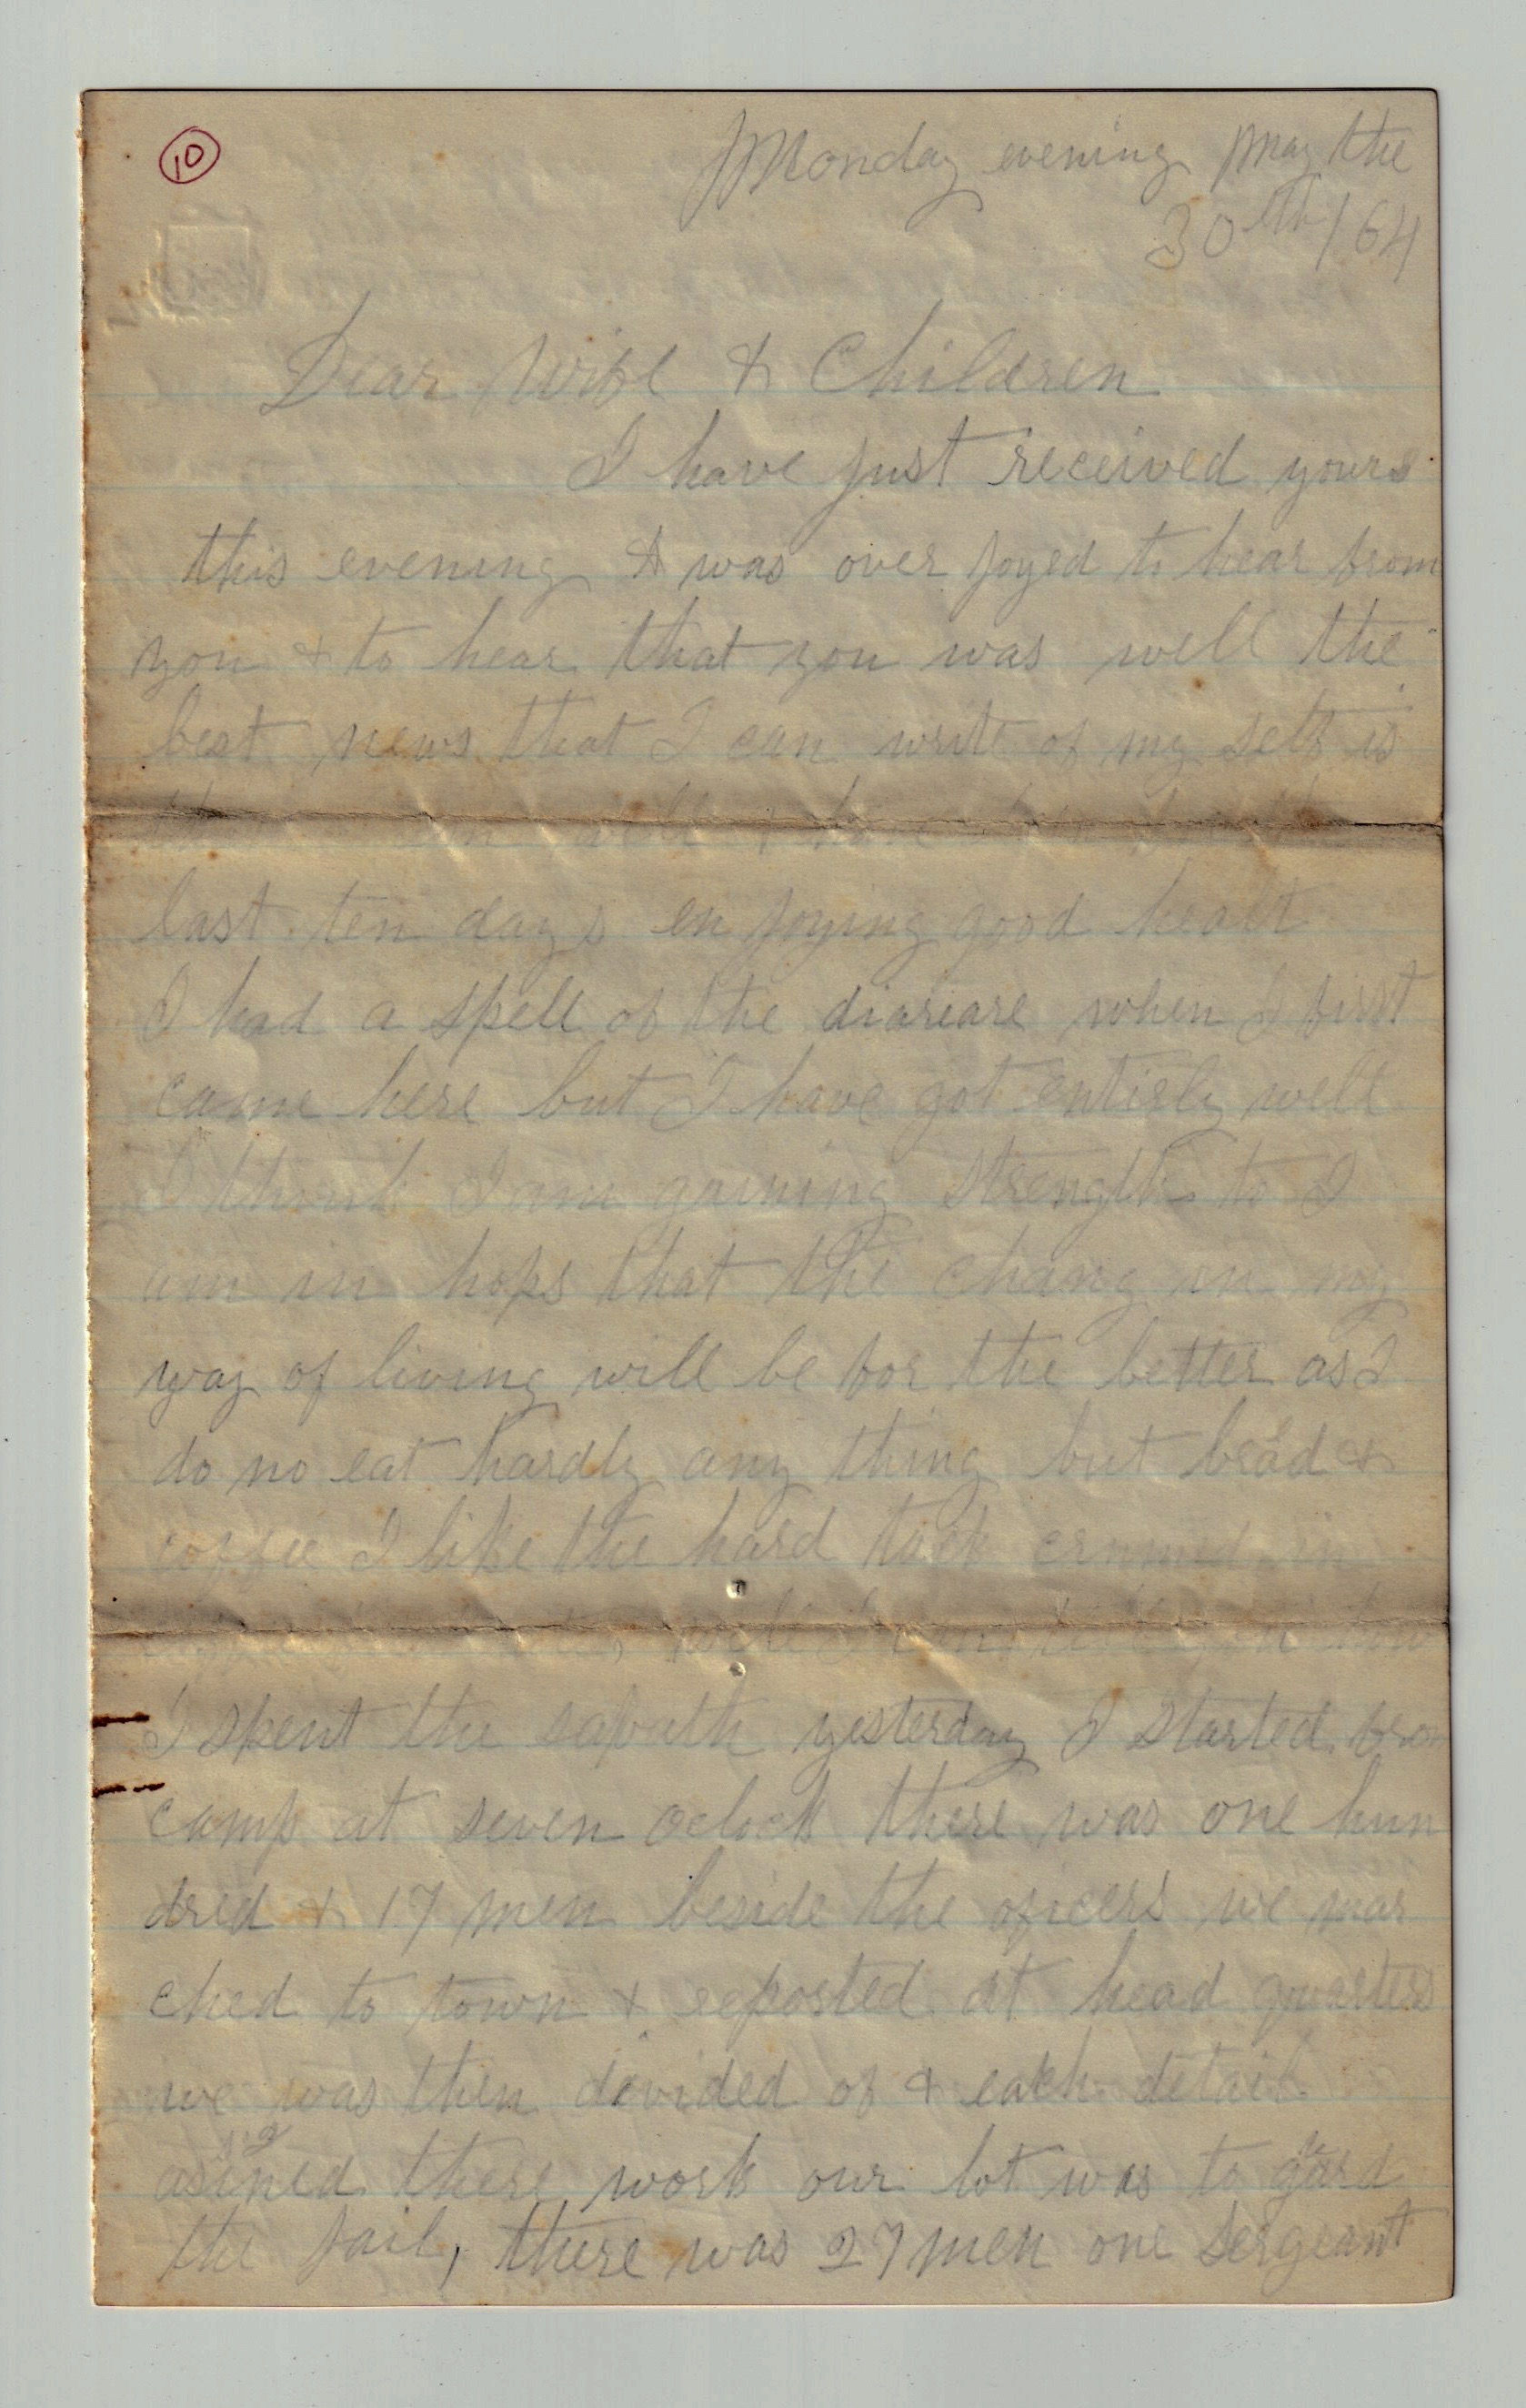 10
Monday evening May the
30th / 64
Dear Wife & Children
I have just received yours
this evening & was over joyed to hear from
you & to hear that you was well the
best news that I can write of my self is
well & have
last ten days en joying good healt
I had a spell of the diareare when I first
came here but I have got entirely well
I think I am gaining strength to I
am in hops that the chang in my
way of living will be for the better as I
do no eat hardly any thing but bread &
coffee I like the hard tack crumd in
well I will tell you how
I spent the sabath yesterday I started from
camp at seven oclock there was one hun
dred & 17 men beside the oficers we mar
ched to town & reported at head quarters
we was then devided of & each detail
asigned there work our lot was to guard
the jail, there was 27 men one sergeant